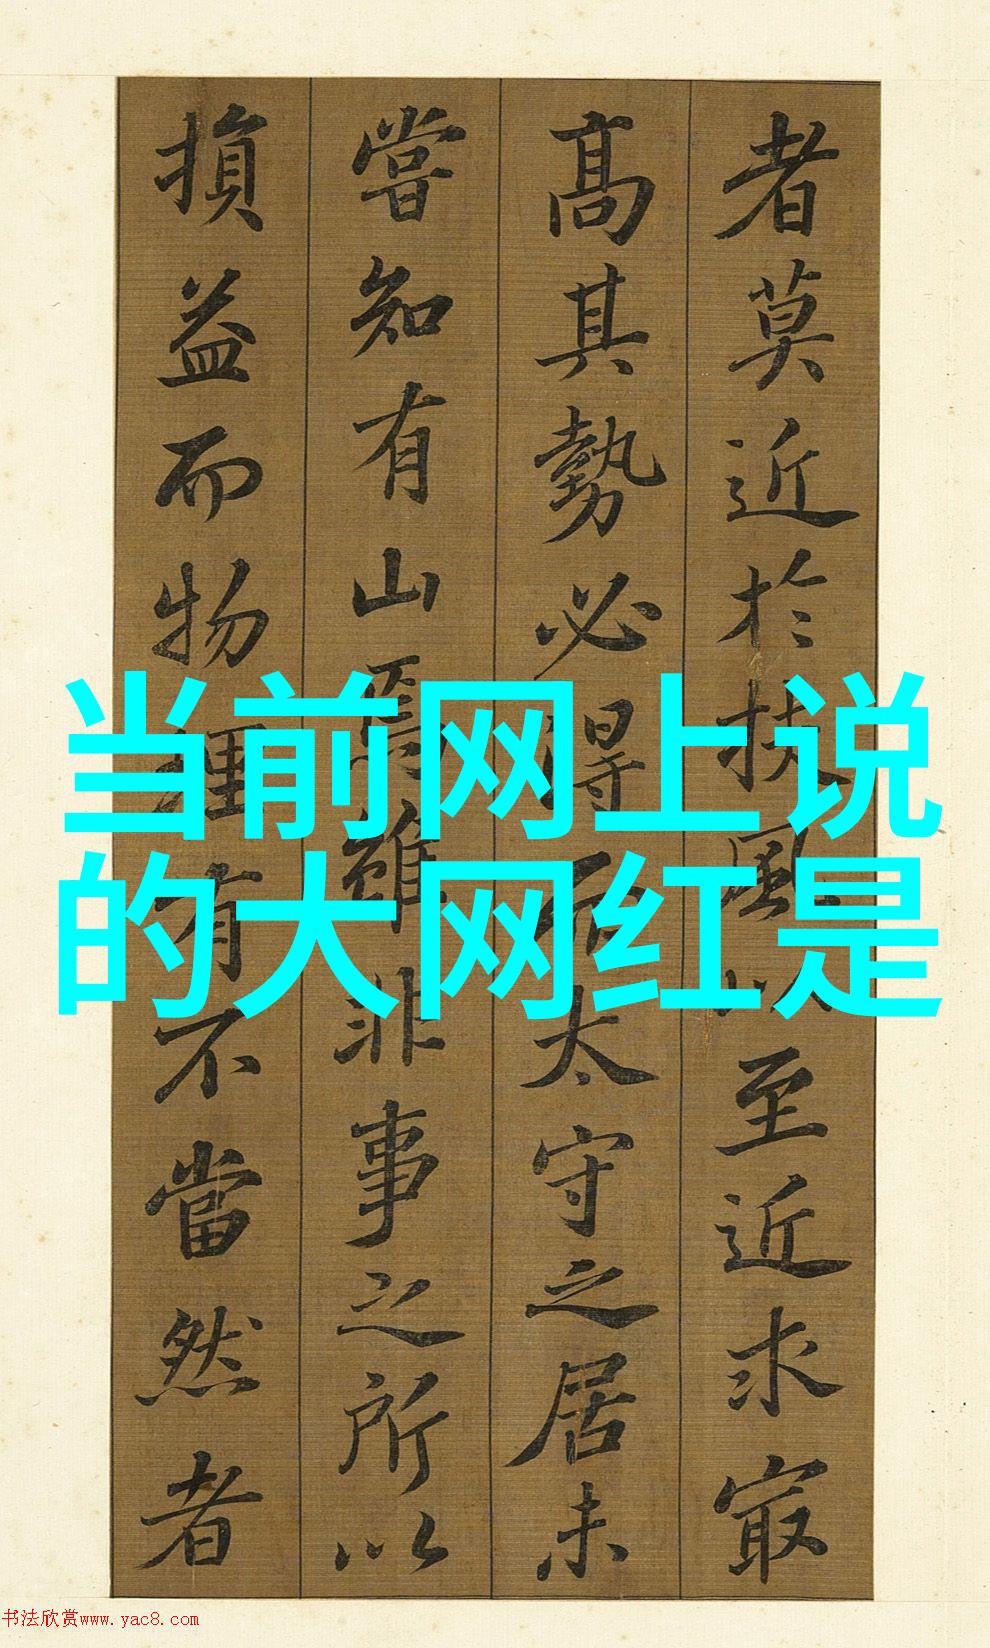 者莫近於扶風以至近求㝡
髙其勢必得而太守之居未
嘗知有山焉雖非事之所以
損益而物理有不當然者
当前网上说
的大网红是
书法欣赏www.yac8.com